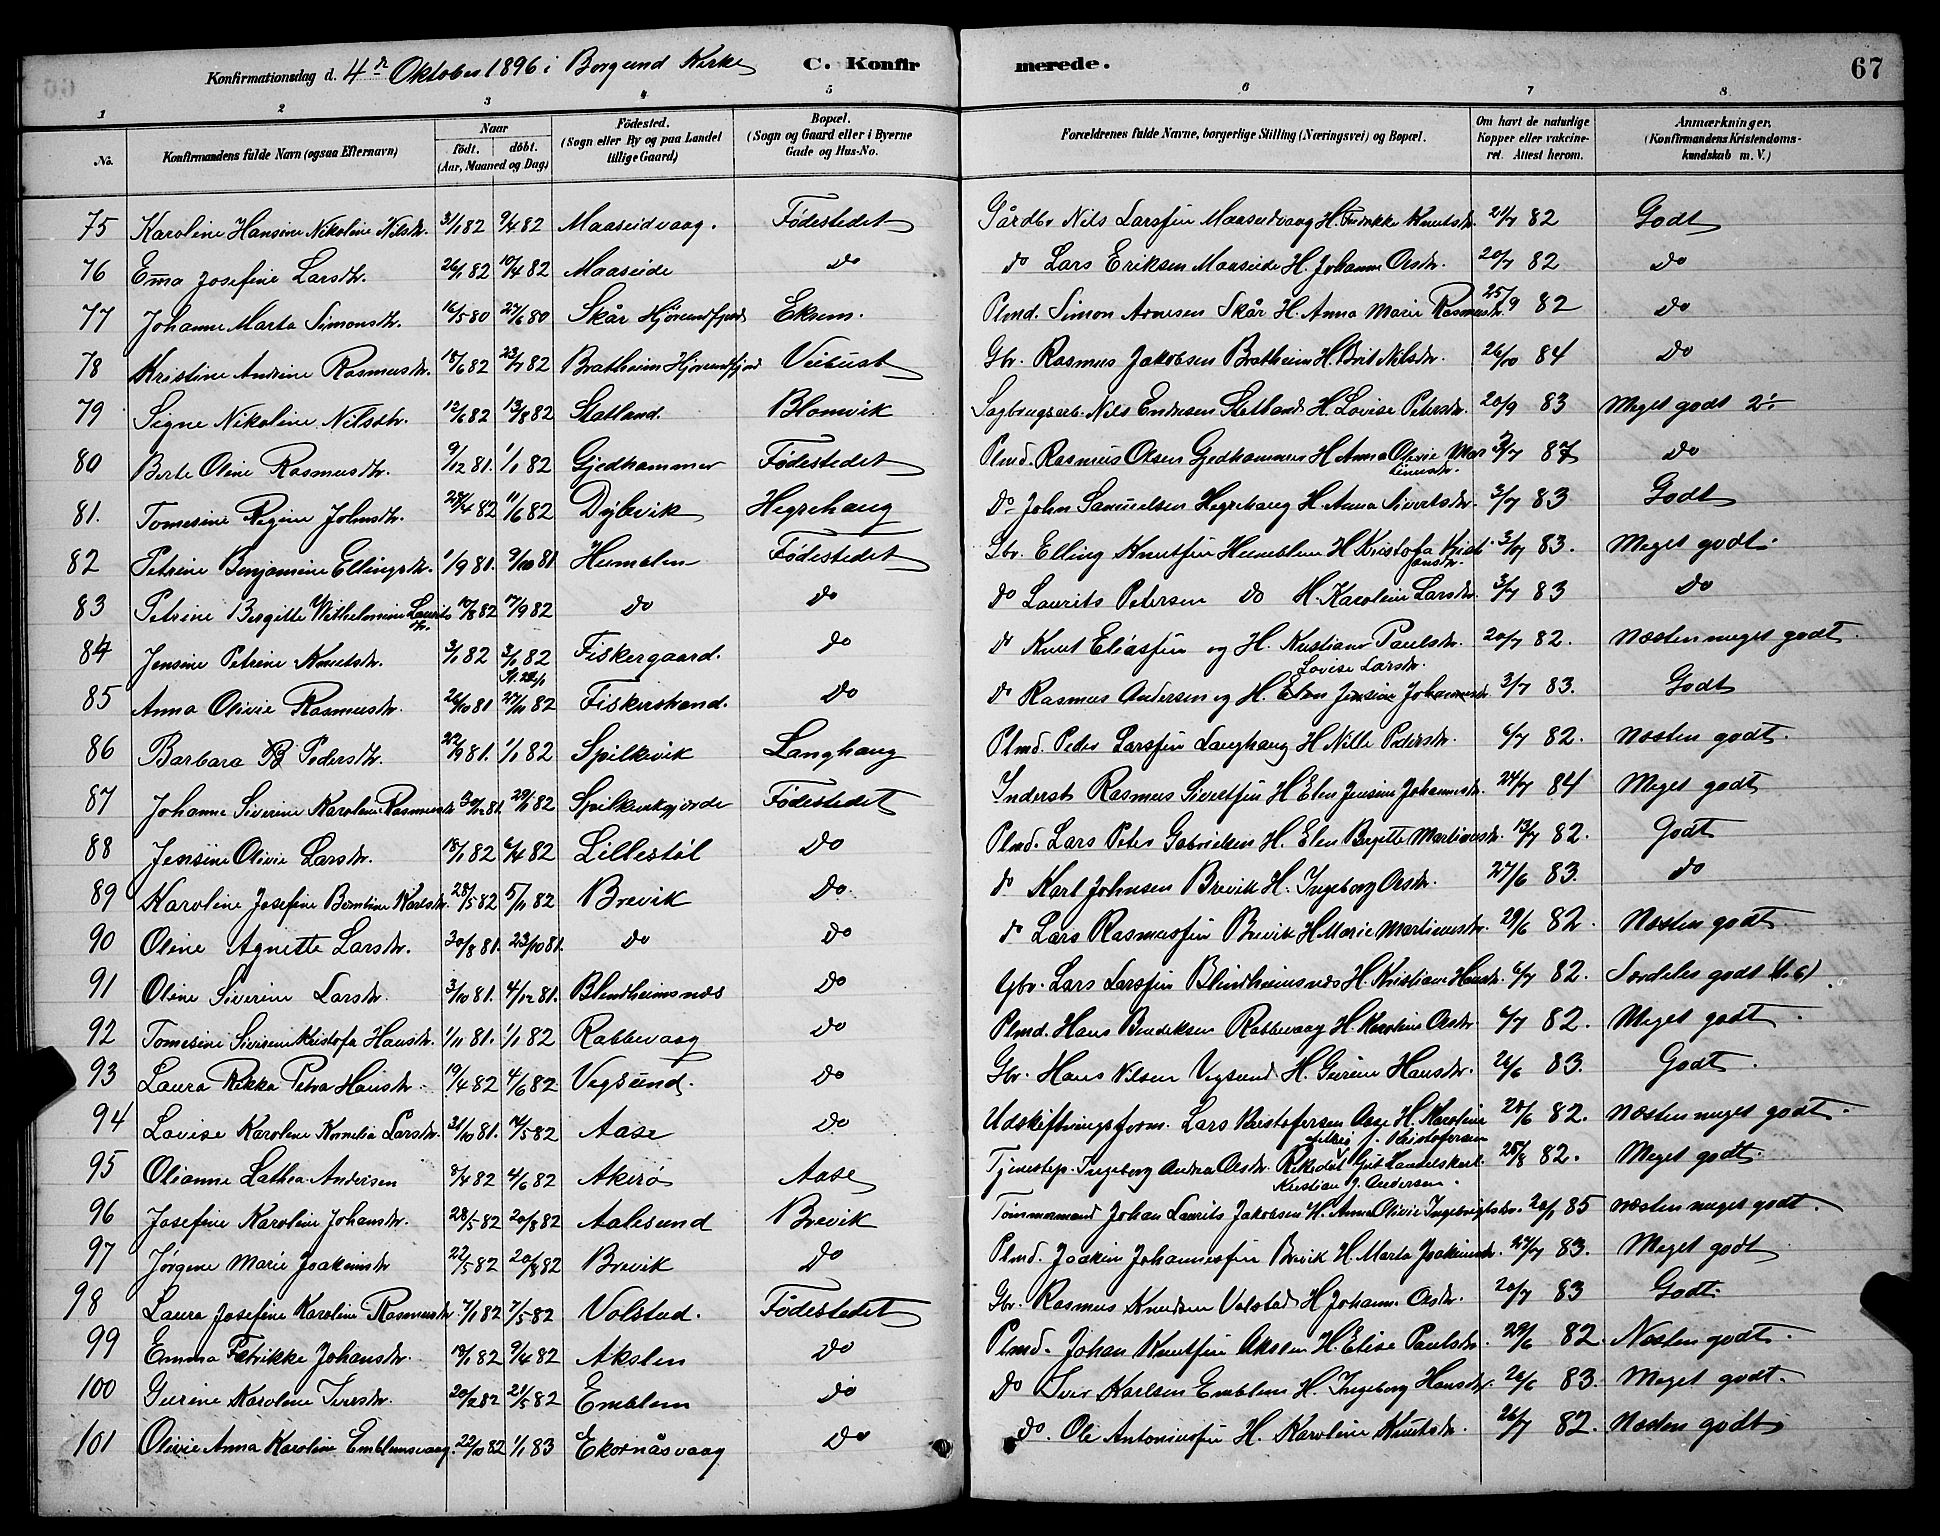 Konfirmationsdag d. 4de Oktober 1896 i Borgund Kirke C. Konfirmerede. 67
1 2 3 4 5 6 7 8
No. Konfirmandens fulde Navn (ogsaa Efternavn) Naar født. døbt. (Aar, Maaned og Dag) Fødested. (Sogn eller By og paa Landet tillige Gaard) Bopæl. (Sogn og Gaard eller i Byerne Gade og Hus-No. Forældrenes fulde Navne, borgerlige Stilling (Næringsvei) og Bopæl. Om havt de naturlige Kopper eller vakcineret. Attest herom. Anmærkninger. (Konfirmandens Kristendomskundskab m. V.)
75 Karoline Hansine Nikoline Nilsdtr. 3/1 82 9/4 82 Maaseidvaag. Fødestedet Gårdbr Nils Larssen Maaseidvaag H. Fredrikke Knutsdtr. 21/7 82 Godt
76 Emma Josefine Larsdtr. 26/1 82 10/4 82 Maaseide do do Lars Eriksen Maaseide H. Johanne Olsdtr. 20/7 82 do
77 Johanne Marta Simonsdtr. 16/5 80 27/6 80 Skår Hjørundfjord Eksem. Plmd. Simon Arnesen Skår H. Anna Marie Rasmusdtr. 25/9 82 do
78 Kristine Andrine Rasmusdtr. 18/6 82 23/7 82 Brathheim Hjørundfjord Veibust Gbr. Rasmus Jakobsen Brathheim H. Brit Nilsdtr. 26/10 84 do
79 Signe Nikoline Nilsdtr. 12/6 82 13/8 82 Slatland. Blomvik Sagbrugsarb. Nils Endresen Slatland H. Lovise Petersdtr. 20/9 83 Meget godt 2÷
80 Berte Oline Rasmusdtr. 9/12 81. 1/1 82 Gjedhammer Fødestedet Plmd. Rasmus Olsen Gjedhammer H. Anna Olivie Martinusdtr. 3/7 87 do
81. Tomesine Regine Johnsdtr. 28/4 82 11/6 82 Dybvik Hegrehaug Do John Samuelsen Hegrehaug H. Anna Sivertsdtr. 3/7 83 Godt
82 Petrine Benjamine Ellingsdtr. 1/9 81. 9/10 81 Humblen Fødestedet Gbr. Elling Knutsen Humblen H Kristofa Kristiansdtr. 3/7 83. Meget godt.
83 Petrine Bergitte Wilhelmine Lauritsdtr. 10/8 82 17/9 82 do do do Laurits Petersen do H. Karoline Larsdtr. 3/7 83 do
84 Jensine Petrine Knutsdtr. 3/1 82 3/1 82 Fiskergaard. do do Knut Eliassen og H. Kristiane Paulsdtr. 20/7 82. Næsten meget godt.
85 Anna Olivie Rasmusdtr. 26/10 81 27/11 82 Fiskerstrand. do do Rasmus Andersen og H. Elen Jensine Johannesdtr Lovise Larsdtr. 3/7 83. Godt
86 Barbara B Pedersdtr. 22/9 81. 1/1 82 Spilkevik Langhaug Plmd. Peder Larssen Langhaug H Nille Petersdtr. 6/7 82. Næsten godt.
87 Johanne Siverine Karoline Rasmusdtr 30/12 81. 29/1 82 Spilkevikgjerde Fødestedet Inderst Rasmus Sivertsen H Elen Jensine Johannesdtr. 24/7 84 Meget godt.
88 Jensine Olivie Larsdtr. 18/1 82 6/4 82 Lillestøl do Plmd. Lars Peter Gabrielsen H. Elen Bergitte Martinusdtr. 13/7 82. Godt
89 Karoline Josefine Berntine Karlsdtr. 28/5 82 5/11 82 Brevik do do Karl Johnsen Brevik H. Ingeborg Olsdtr. 27/6 83. do
90 Oline Agnette Larsdtr. 30/8 81. 23/10 81. do do do Lars Rasmussen Brevik H. Marie Martinusdtr. 29/6 82. Næsten godt.
91 Oline Siverine Larsdtr. 3/10 81. 4/12 81. Blindheimsnes do Gbr. Lars Larssen Blindheimsnes H. Kristiane Hansdtr. 6/7 82. Særdeles godt (1.6).
92 Tomesine Siverine Kristofa Hansdtr. 1/11 81. 1/1 82 Rabbevaag do Plmd. Hans Bendiksen Rabbevaag H. Karoline Olsdtr. 6/7 82. Meget godt.
93 Laura Rikka Petra Hansdtr. 19/4 82 4/6 82 Vegsund. do Gbr. Hans Nilsen Vegsund H. Gurine Hansdtr. 26/6 83. Godt.
94 Lovise Karoline Kornelia Larsdtr. 31/10 81. 14/5 82 Aase do Udskiftningsform. Lars Kristofersen Aase H. Karoline J. Kristofersen 20/6 82. Næsten meget godt.
95 Olianna Lathea Andersen 8/4 82 4/6 82 Akerø Aase Tjenestep. Ingeborg Andrea Olsdtr. Rikedal Gift Handelskarl Kristian J. Andersen. 25/8 82. Meget godt.
96 Josefine Karoline Johansdtr. 28/5 82 20/8 82 Aalesund Brevik Tømmermand Johan Laurits Jakobsen H. Anne Olivie Ingebrigtsdtr. 20/1 85 Næsten meget godt.
97 Jørgine Marie Joakimsdtr 22/5 82 20/8 82 Brevik do Plmd. Joakim Johannessen Brevik H. Marta Joakimsdtr. 27/7 83. Meget godt
98 Laura Josefine Karoline Rasmusdtr. 7/1 82 7/5 82 Volstad. Fødestedet Gbr. Rasmus Knudsen Volstad H. Johanne Olsdtr. 20/7 83 Godt.
99 Emma Petrikke Johansdtr. 19/1 82 9/4 82 Akslen do Plmd. Johan Knutsen Akslen H. Elise Paulsdtr. 29/6 82. Næsten godt.
100 Gurine Karoline Iversdtr. 20/2 82 21/5 82 Emblem do do Iver Karlsen Emblem H. Ingeborg Hansdtr. 26/6 83. Meget godt.
101 Olivie Anna Karoline Emblemsvaag. 22/10 82 1/1 83 Ekornåsvaag do do. Ole Antoniussen H. Karoline Knutsdtr. 26/7 82. Næsten godt